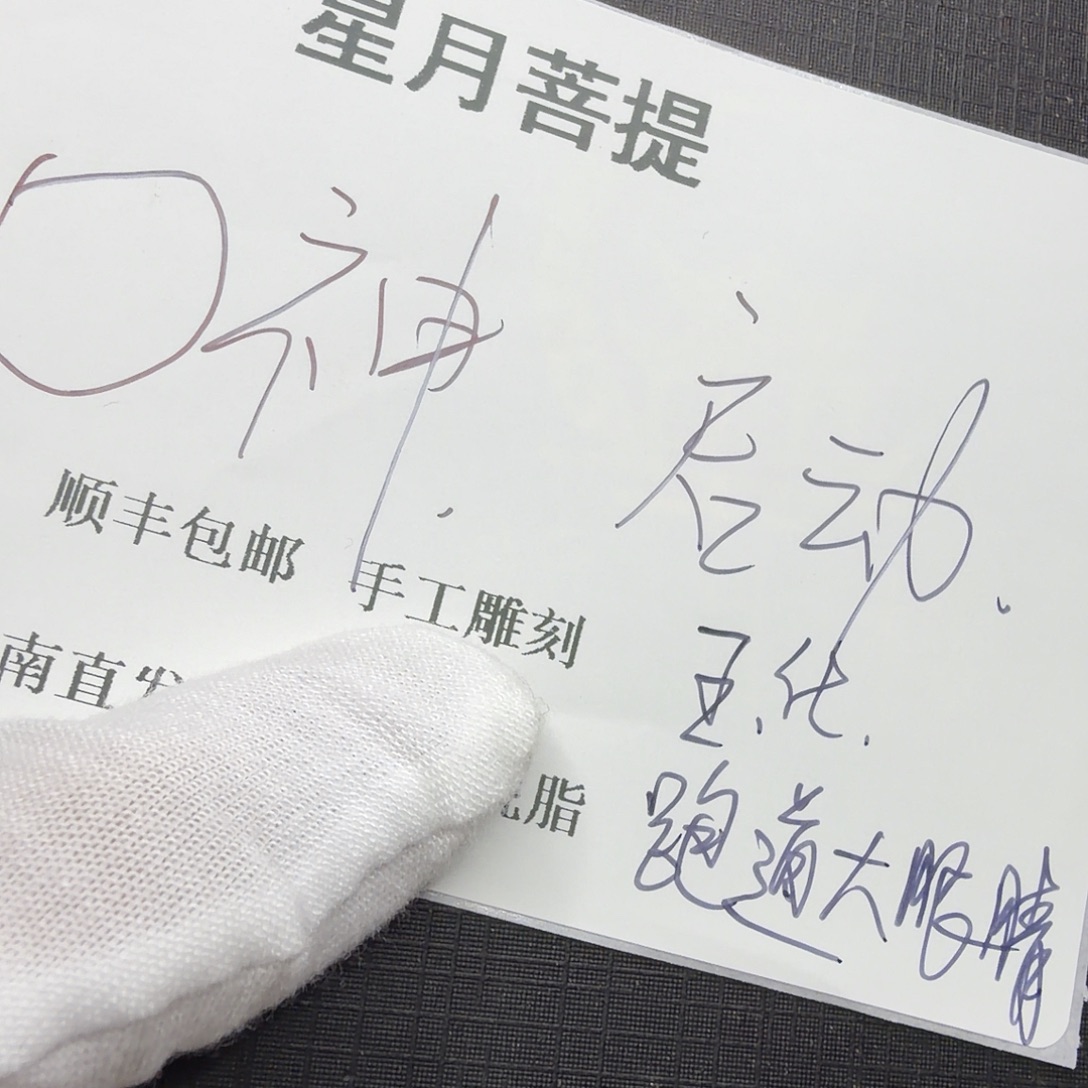 星月菩提
O神 启动.
顺丰包邮 手工雕刻
南直发
脂
王.化.
跑道大眼睛